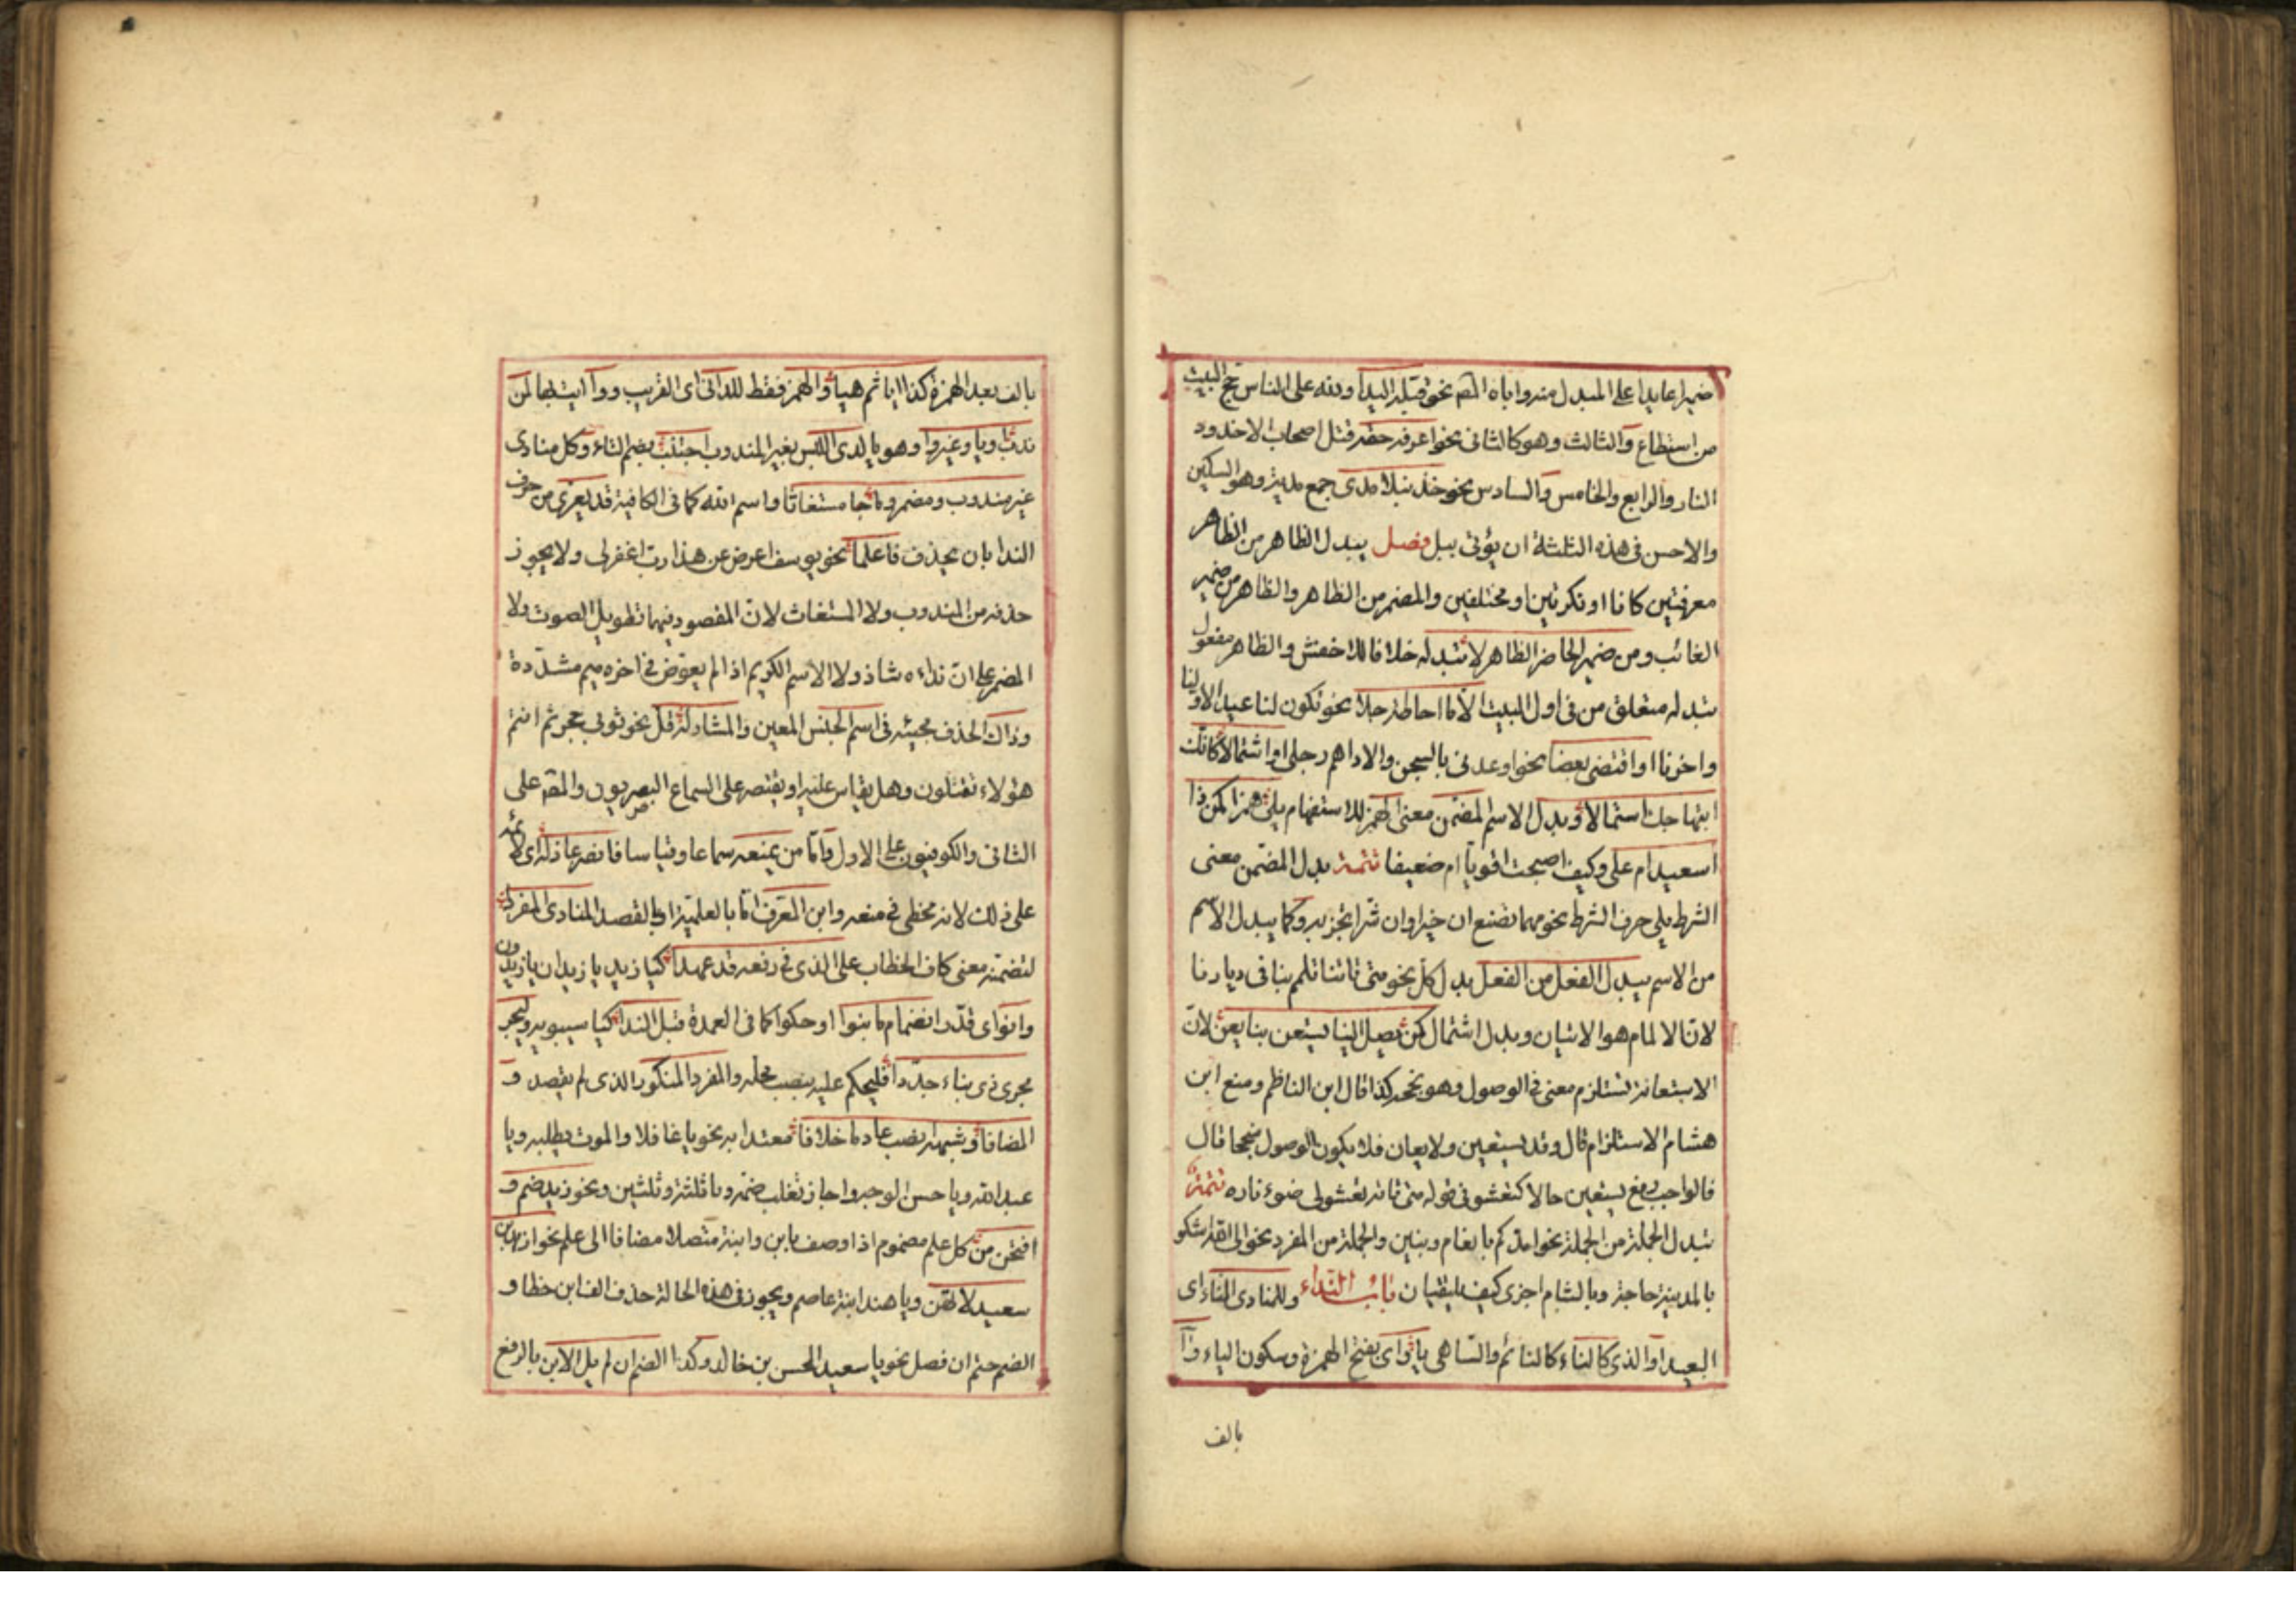 ضميرا عايدا على المبدل منه واياه المقم نحو قبله اليدا ولله على الناس حج البيت
من استطاع والثالث وهو كالثانى نحو اعرفه حقه قتل اصحاب الاخدود
النار والرابع والخامس والسادس نحو خذ نبلا مدى جمع مدية وهو السكين
والاحسن فى هذه الثلثة ان يؤتى ببل فصل يبدل الظاهر من الظاهر
معرفتين كانا او نكرتين او مختلفين والمضمر من الظاهر والظاهر من ضمير
الغائب ومن ضمير الحاضر الظاهر لا تبدله خلافا للاخفش والظاهر مفعول
تبدله متعلق من فى اول البيت الا ما احاطة جلا نحو تكون لنا عيدا لاولنا
واخرنا او اقتضى بعضا نحو اوعدنى بالسجن والاداهم رجلى او اشتمالا كانك
ابتهاجك استمالا وبدل الاسم المضمن معنى الهمز للاستفهام يلى همزا كمن ذا
اسعيد ام على وكيف اصبحت اقويا ام ضعيفا تتمة بدل المضمن معنى
الشرط يلى حرف الشرط نحو مهما تصنع ان خيرا وان شرا تجز به وكما يبدل الاسم
من الاسم يبدل الفعل من الفعل بدل كل نحو متى تاتنا تلمم بنا فى ديارنا
لان الالمام هو الاتيان وبدل اشتمال كمن يصل الينا يستعن بنا يعن لان
الاستعانة تستلزم معنى فى الوصول وهو نجحه كذا قال ابن الناظم ومنع ابن
هشام الاستلزام قال وقد يستعين ولا يعان فلا يكون الوصول منجحا قال
فالواجب رفع يستعين حالا كتعشو فى قوله متى تاته تعشو الى ضوء ناره تتمة
تبدل الجملة من الجملة نحو امدكم بانعام وبنين والجملة من المفرد نحو الى الله اشكو
بالمدينة حاجة وبالشام اخرى كيف يلتقيان باب النداء وللمنادى الناء اى
البعيد او الذى كالناء كالنائم والساهى يا واى بفتح الهمزة وسكون الياء وآ
بالف
بالف بعد الهمزة كذا ايا ثم هيا والهمز فقط للدانى اى القريب ووا ايت بها لمن
ندب او يا وغير وا وهو يا لدى اللبس بغير المندوب اجتنب بضم التاء وكل منادى
غير مندوب ومضمر وما جا مستغاثا واسم الله كما فى الكافية قد يعرى من حرف
الندا بان يحذف فاعلما نحو يوسف اعرض عن هذا رب اغفر لى ولا يجوز
حذفه من المندوب ولا المستغاث لان المقصود فيهما تطويل الصوت ولا
المضمر على ان نداءه شاذ ولا الاسم الكريم اذا لم يعوض فى اخره ميم مشددة
وذاك الحذف مجيئه فى اسم الجنس المعين والمشار له قل نحو ثوبى حجر ثم انتم
هؤلاء تقتلون وهل يقاس عليه او يقتصر على السماع البصريون والمقم على
الثانى والكوفيون على الاول واما من يمنعه سماعا وقياسا فانصر عاذله اى لائمه
على ذلك لانه مخطى فى منعه وابن المعرف اما بالعلمية او بالقصد المنادى المفردا
لتضمنه معنى كاف الخطاب على الذى فى رفعه قد عهدا كيا زيد يا زيدان يا زيدون
وانو اى قدر انضمام ما بنوا او حكوا كما فى العمدة قبل الندا كيا سيبويه وليجر
مجرى ذى بناء جددا فليحكم عليه بنصب محله والمفرد المنكور الذى لم يقصد و
المضافا وشبهه انصب عادما خلافا معتدا به نحو يا غافلا والموت يطلبه ويا
عبد الله ويا حسن الوجه واجاز ثعلب ضمه ويا ثلثة وثلثين ونحو زيد ضم و
افتحن من كل علم مضموم اذا وصف بابن وابنة متصلا مضافا الى علم نحو ازيد بن
سعيد لا تهن ويا هند ابنة عاصم ويجوز فى هذه الحالة حذف الف ابن خطا و
الضم حتم ان فصل نحو يا سعيد الحسن بن خالد وكذا الضم ان لم يل الابن بالرفع